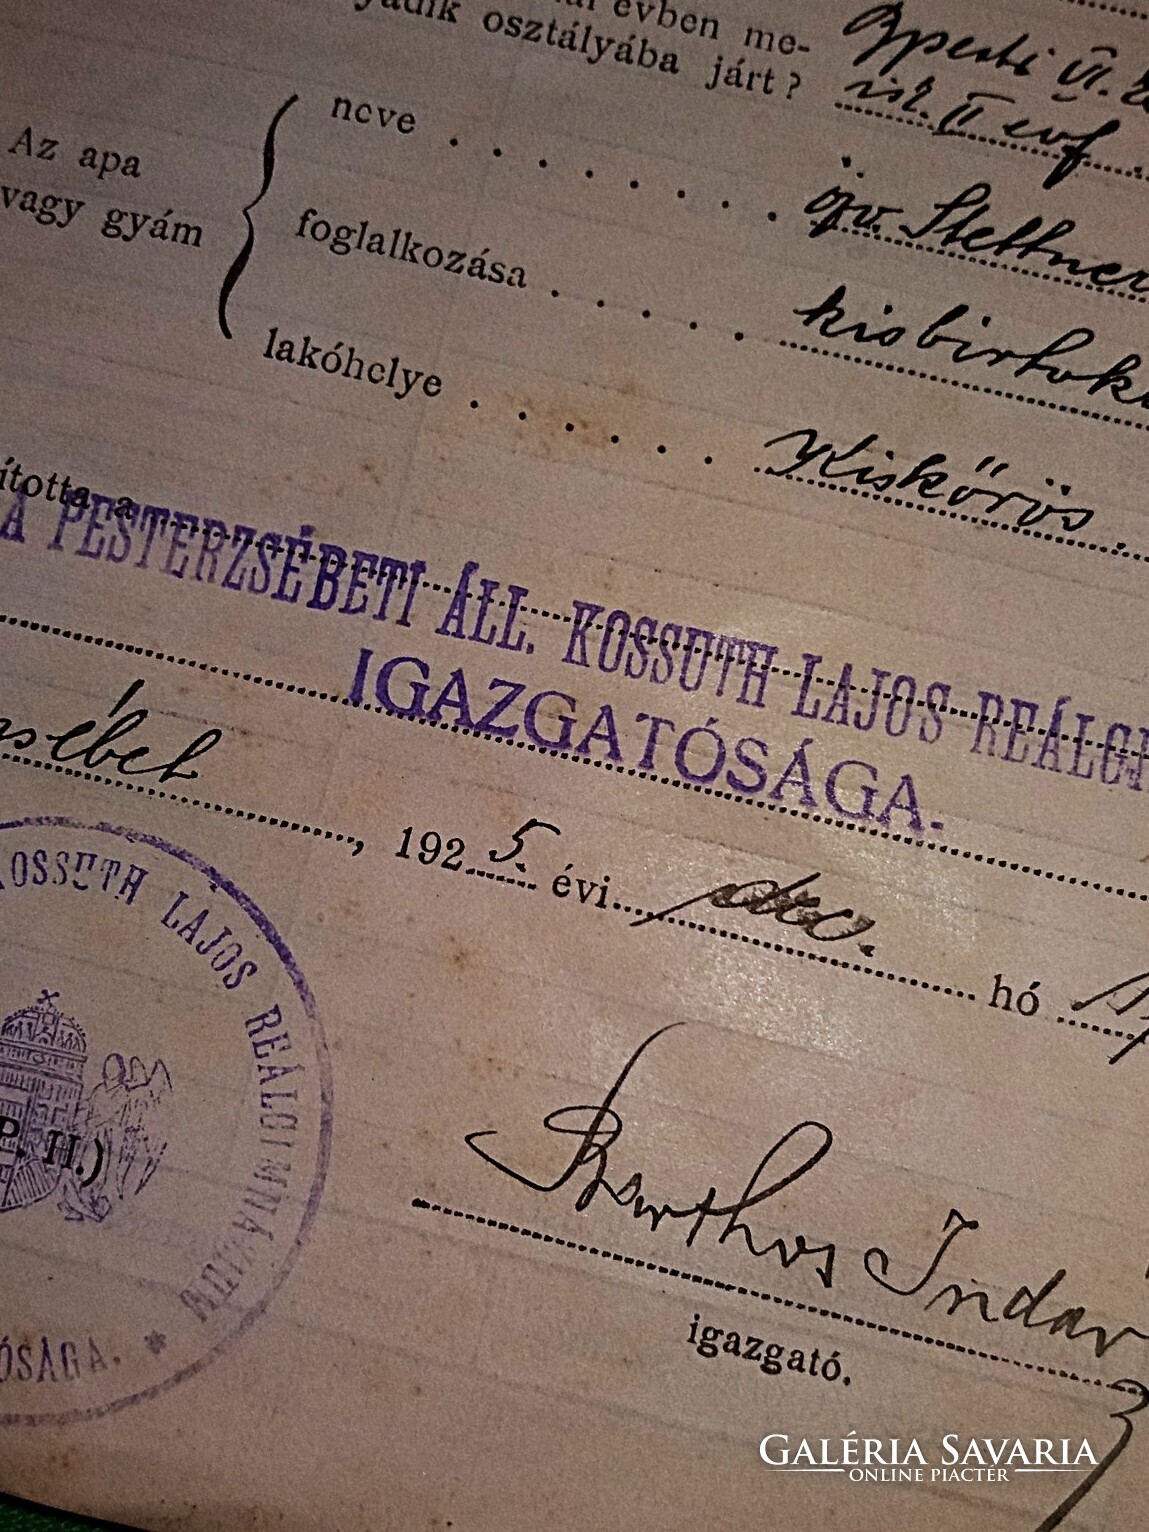 évben me-
osztályába járt?
isk. II évf.
Az apa
vagy gyám
neve
özv. Stettner
foglalkozása
kisbirtok
lakóhelye
Kiskőrös.
ította a
A PESTERZSÉBETI ÁLL. KOSSUTH LAJOS REÁLGI
IGAZGATÓSÁGA.
rsébet, 1925. évi dec. hó
KOSSUTH LAJOS REÁLGIMNÁZIUM
ÓSÁGA. *
P. H.)
Barthos Indár
igazgató.
GALÉRIA SAVARIA
ONLINE PIACTÉR